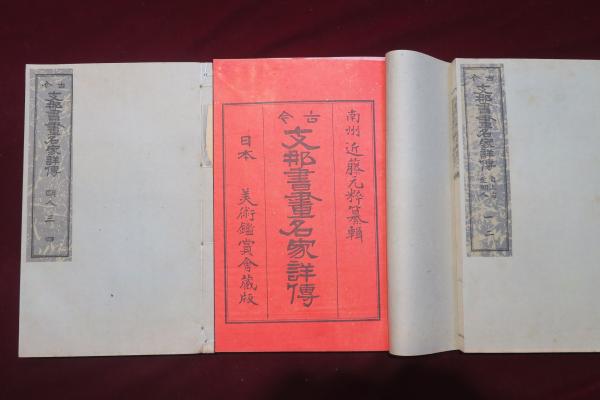 古今
支那書畫名家詳傳
一 二
南州 近藤元粹纂輯
古今
支那書畫名家詳傳
日本 美術鑑賞會藏版
古今
支那書畫名家詳傳
明人 三 四